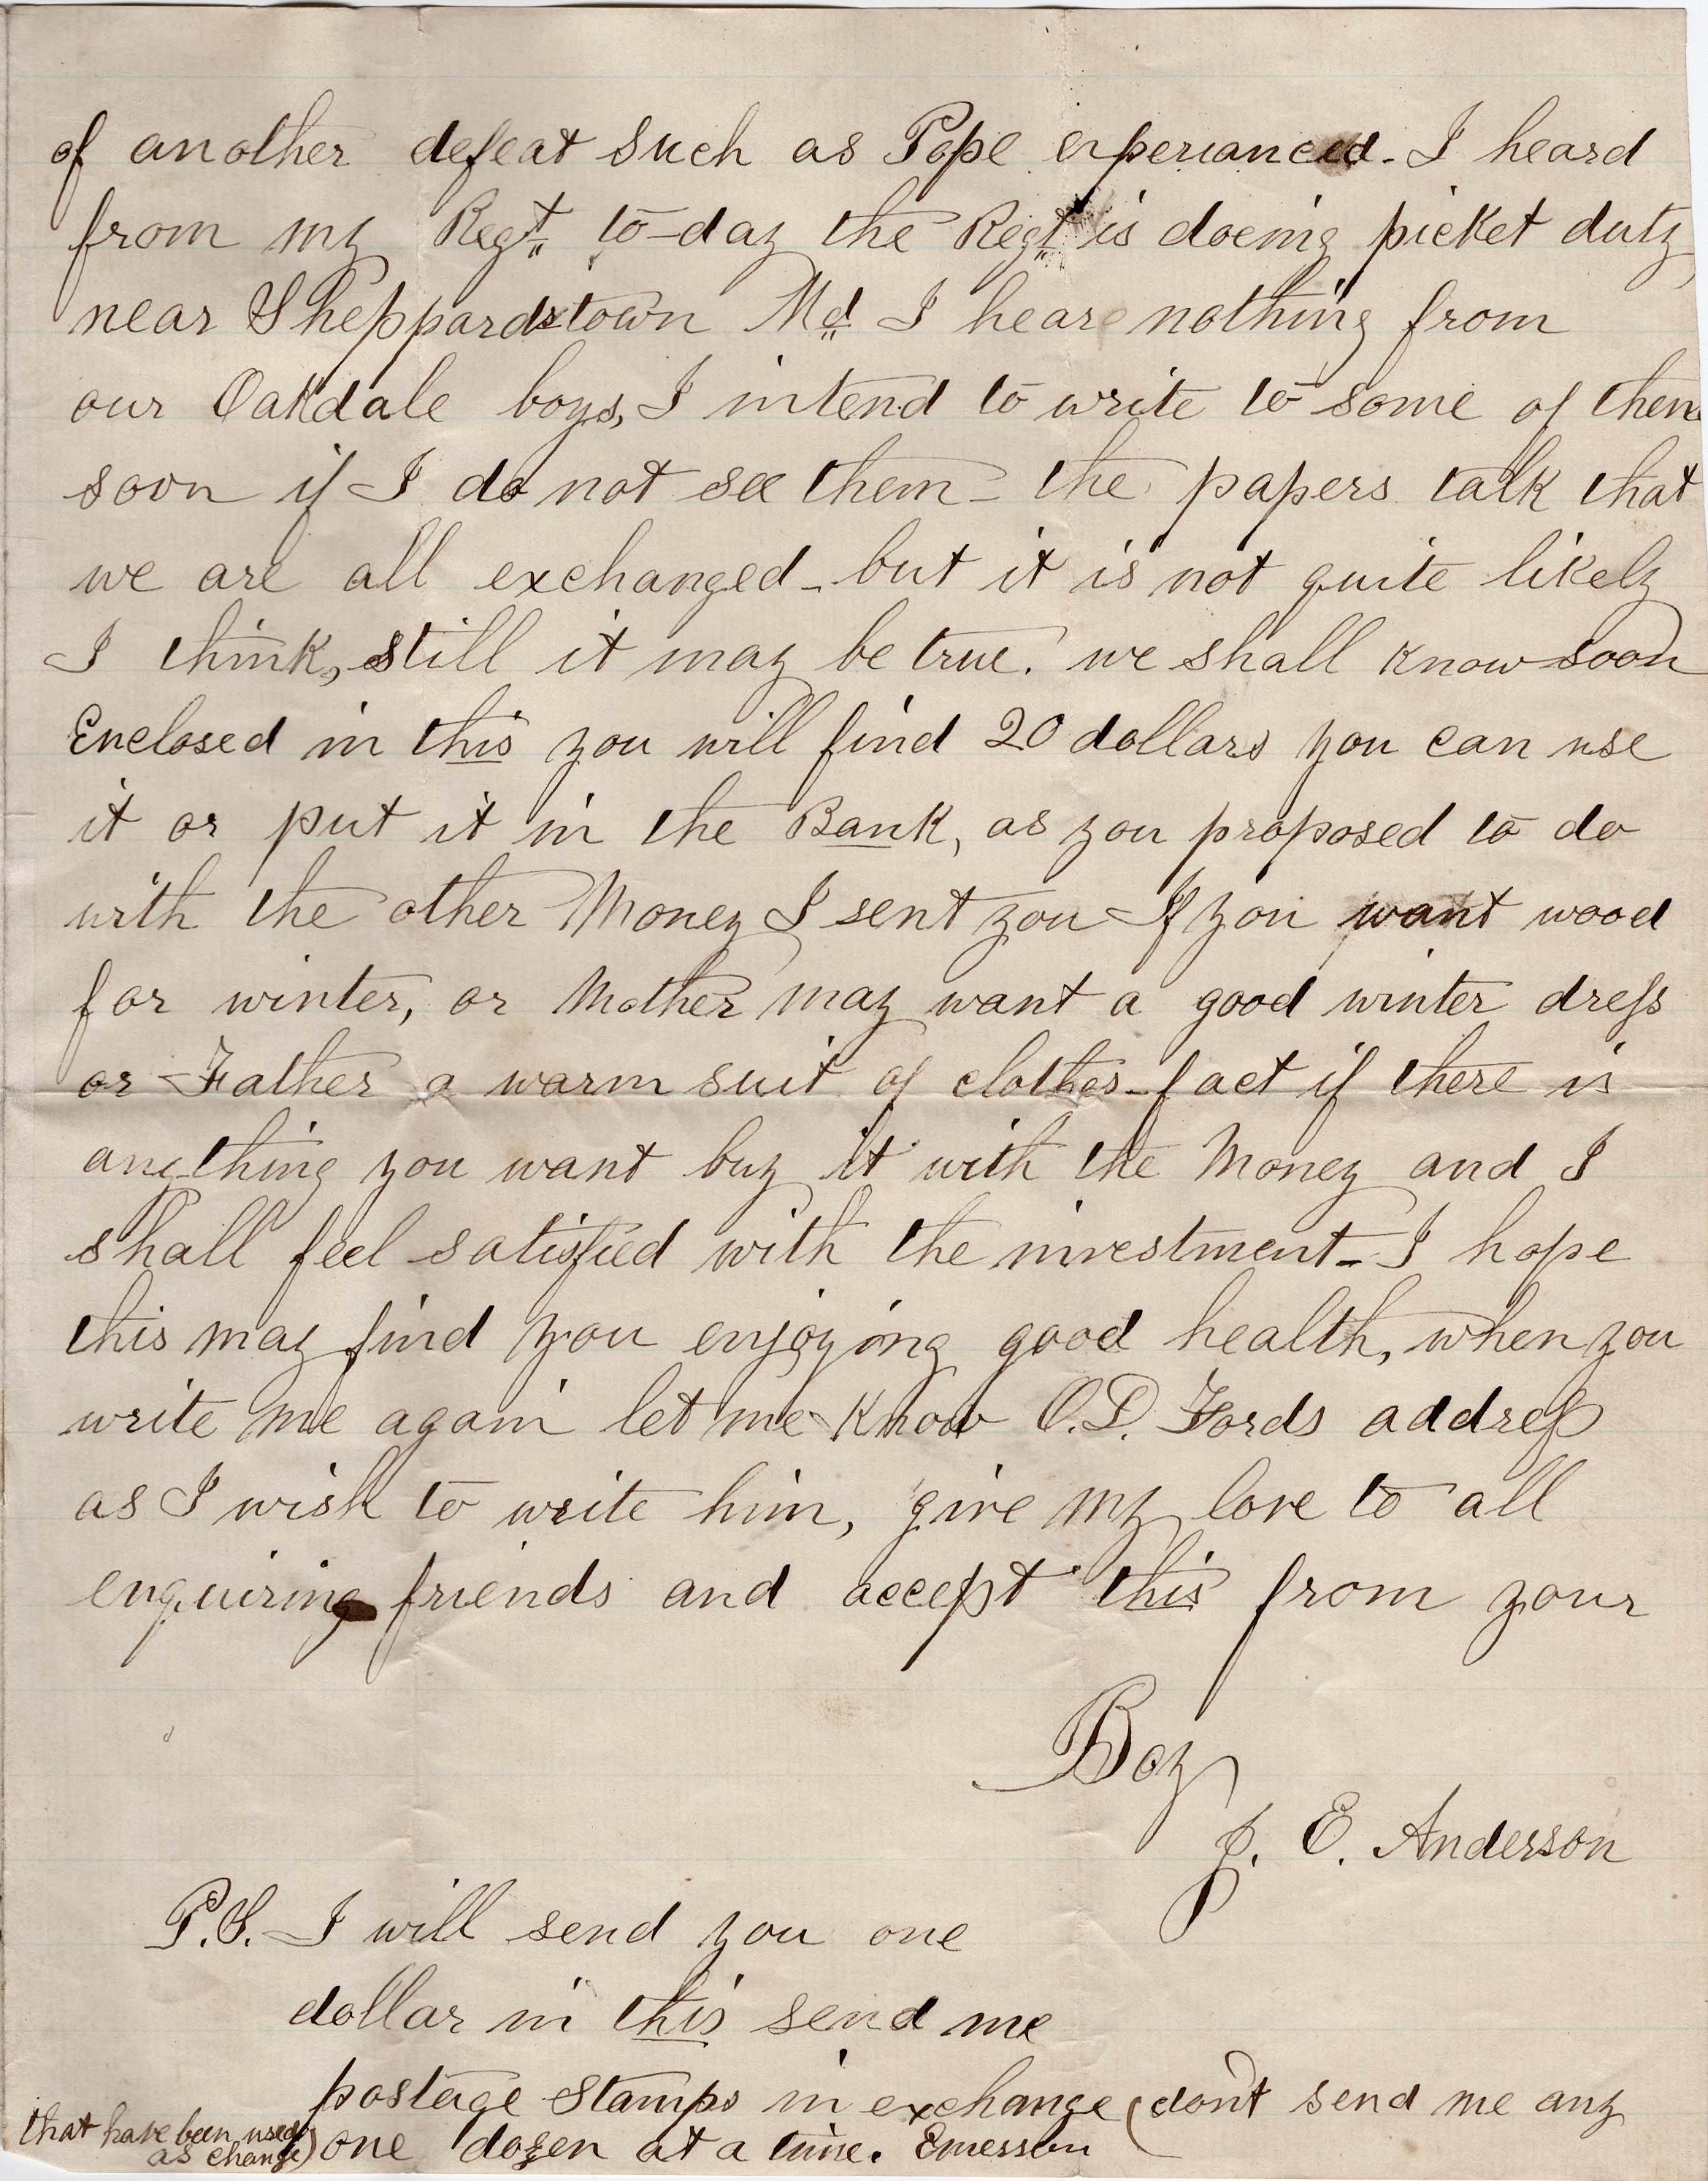 of another defeat such as Pope experianced - I heard
from my Regt to-day the Regt is doeing picket duty
near Sheppardstown Md I hear nothing from
our Oakdale boys, I intend to write to some of them
soon if I do not see them - the papers talk that
we are all exchanged - but it is not quite likely
I think, still it may be true. we shall know soon
Enclosed in this you will find 20 dollars you can use
it or put it in the Bank, as you proposed to do
with the other Money I sent you - If you want wood
for winter, or Mother may want a good winter dress
or Father a warm suit of clothes - fact if there is
anything you want buy it with the Money and I
shall feel satisfied with the investment - I hope
this may find you enjoying good health, when you
write me again let me know O.D. Fords address
as I wish to write him, give my love to all
enquiring friends and accept this from your
Boy
J. E. Anderson
P.S. I will send you one
dollar in this send me
postage Stamps in exchange (don't send me any
that have been used
as change)
one dozen at a time. Emerson